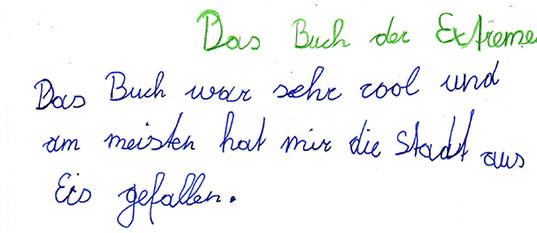 Das Buch der Extreme
Das Buch war sehr cool und
am meisten hat mir die Stadt aus
Eis gefallen.